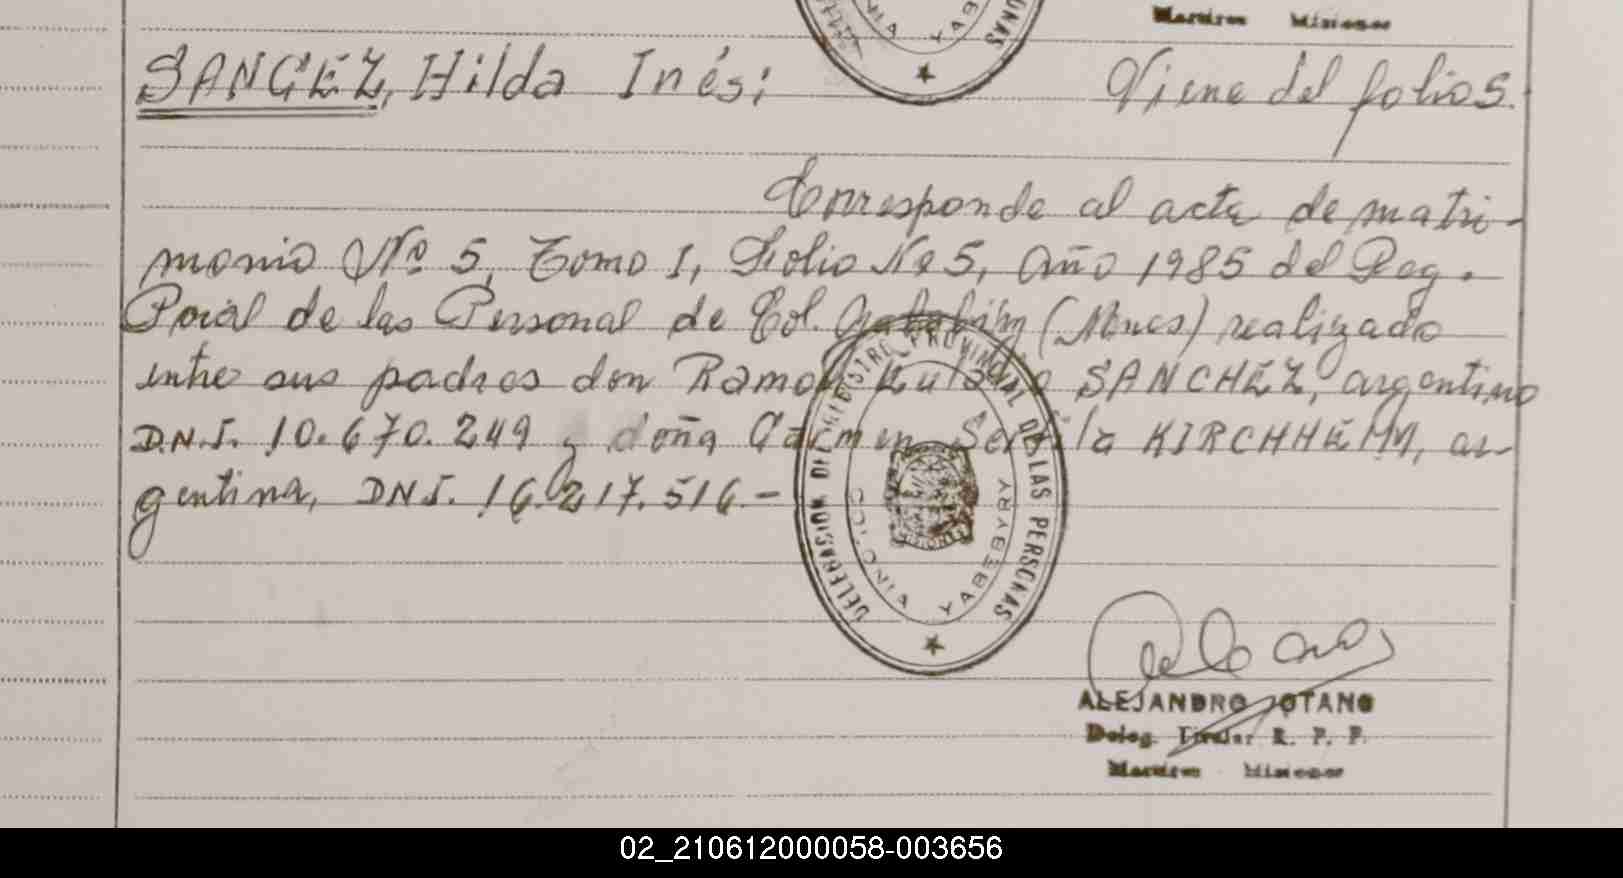 Martires Misiones
SANCEZ, Hilda Inés; Viene del folio 5.
Corresponde al acta de matri-
monio Nº 5, Tomo I, Folio Nº 5, año 1985 del Reg.
Pcial de las Personal de Col. (Mnes) realizado
entre sus padres don Ramon SANCHEZ, argentino
D.N.I. 10.670.249 y doña Carmen KIRCHHEMM, ar-
gentina, DNI. 16.217.516.-
DELEGASION DEL REGISTRO PROVINCIAL DE LAS PERSONAS
COLONIA YABEBYRY
ALEJANDRO OTANO
Deleg. Titular R. P. P.
Martires Misiones
02_210612000058-003656